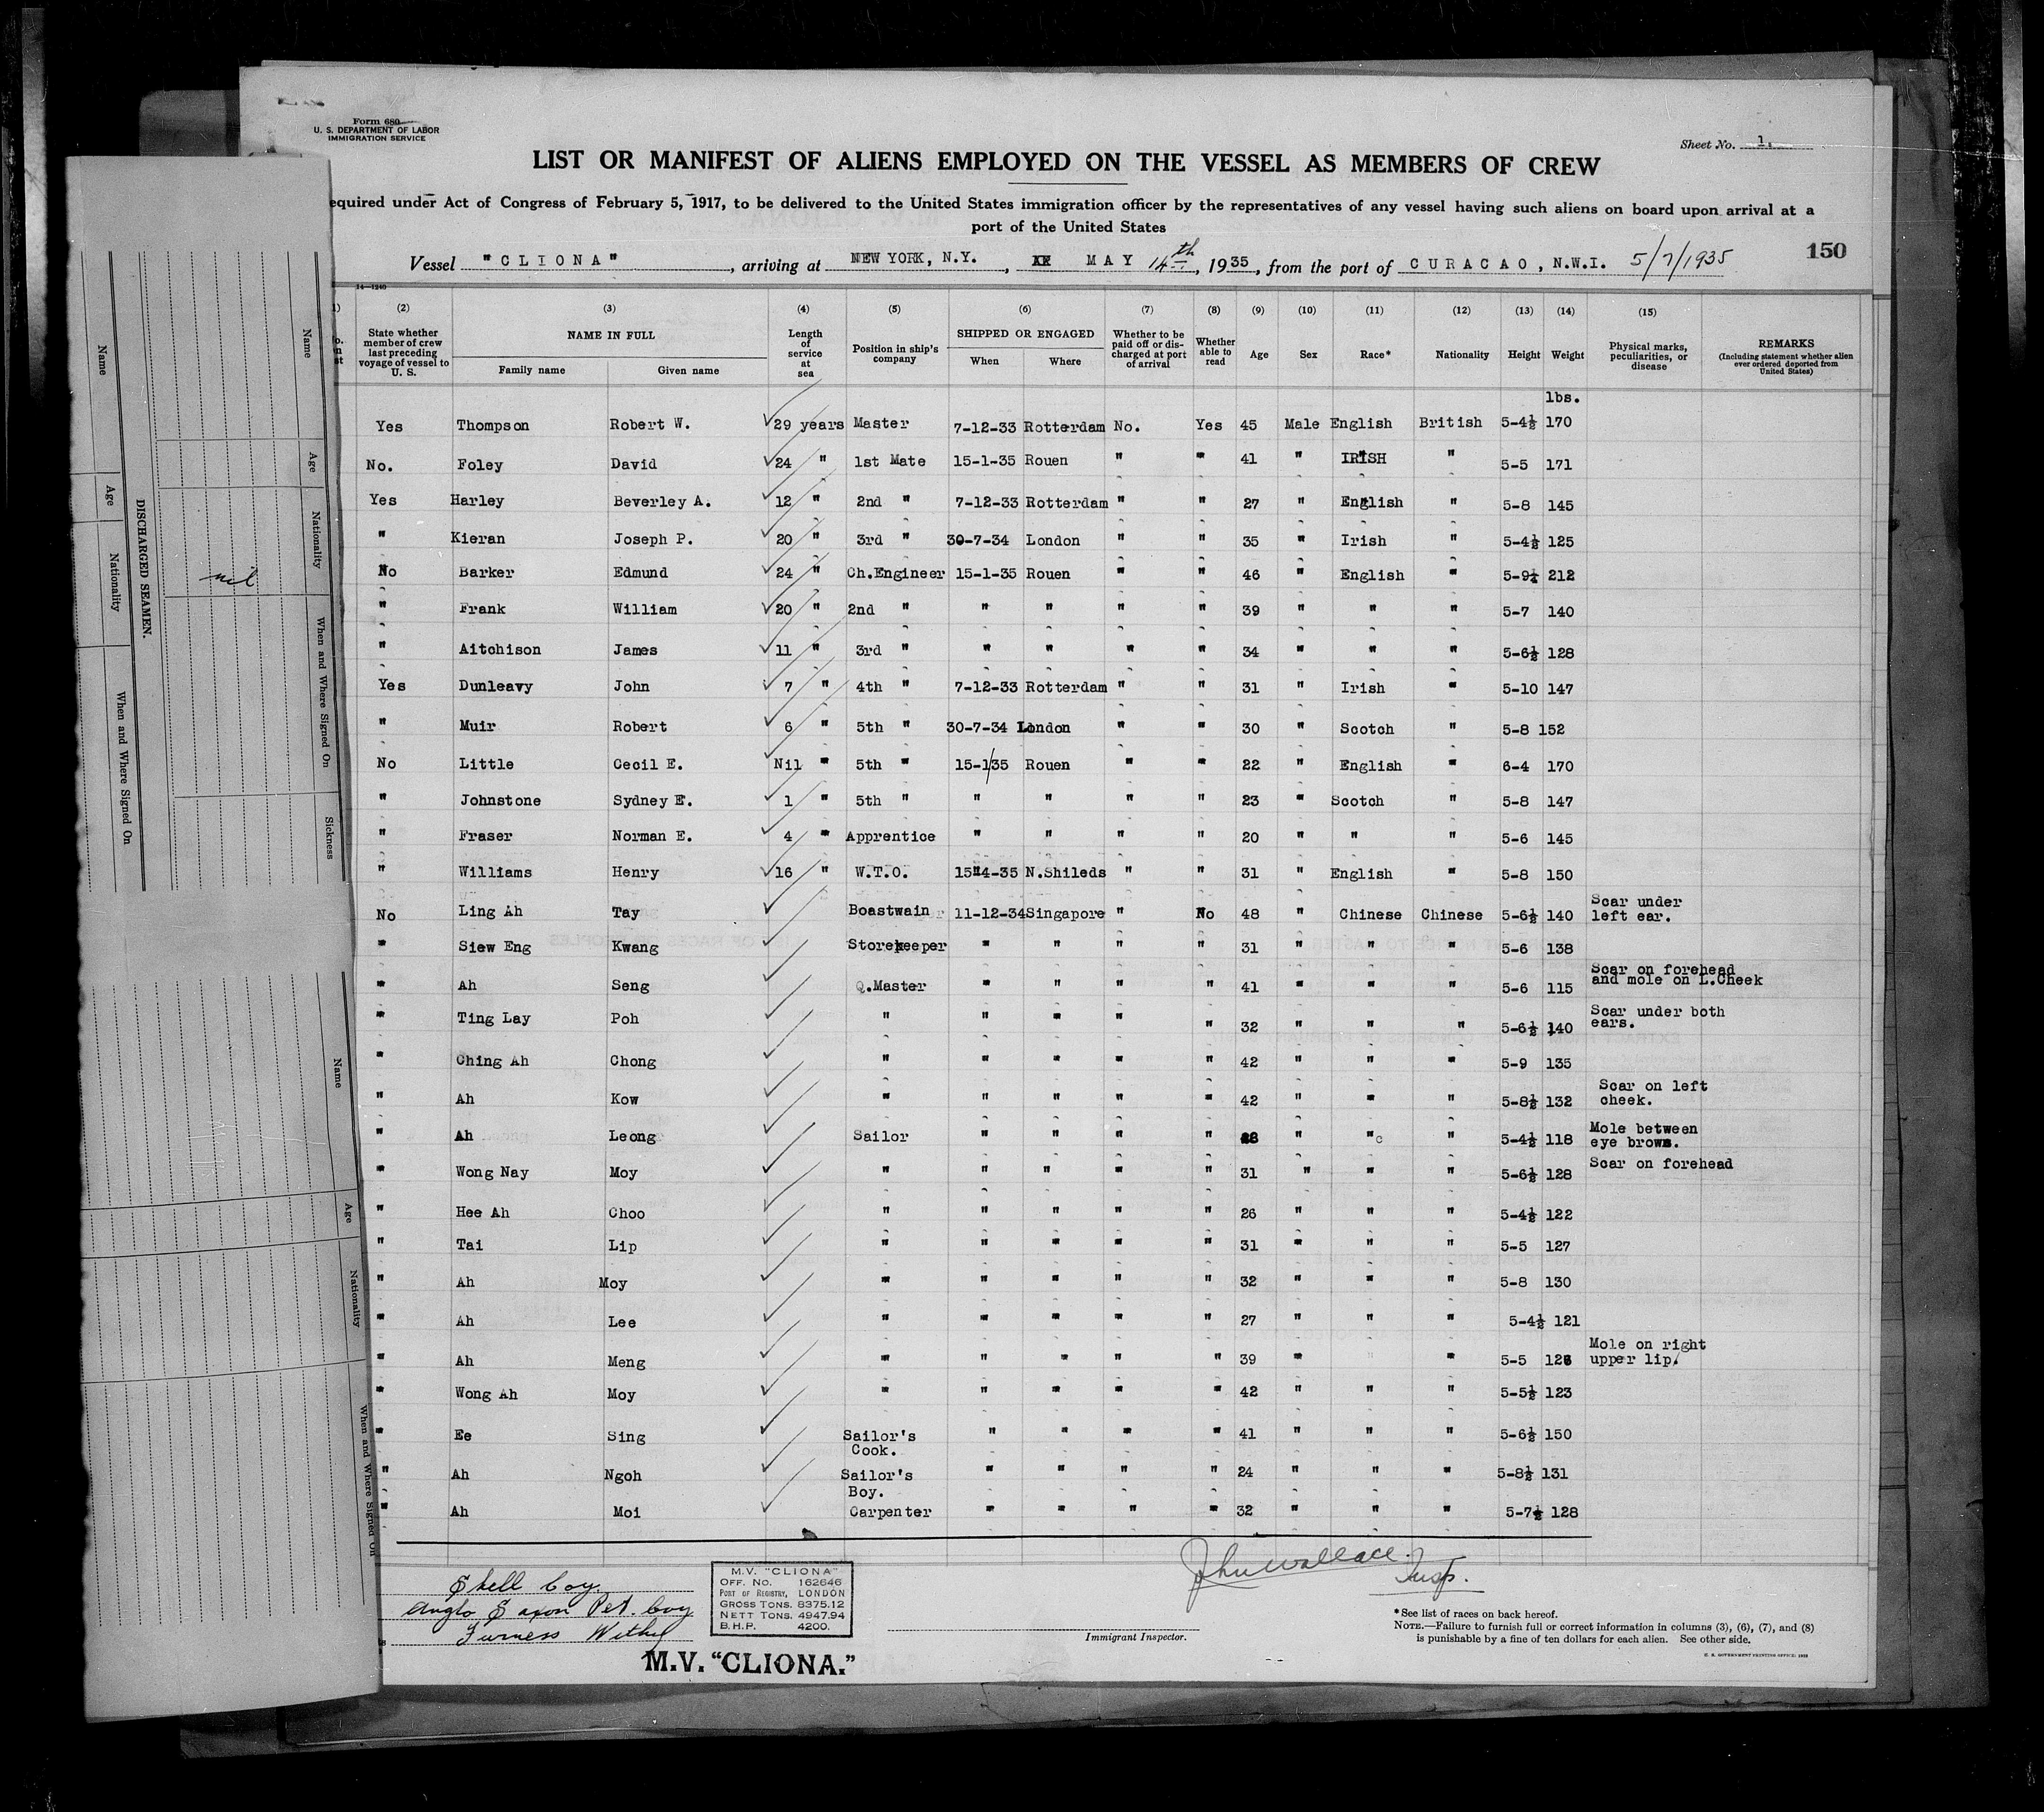 Form 680
U. S. DEPARTMENT OF LABOR
IMMIGRATION SERVICE
Sheet No. 1.
LIST OR MANIFEST OF ALIENS EMPLOYED ON THE VESSEL AS MEMBERS OF CREW
equired under Act of Congress of February 5, 1917, to be delivered to the United States immigration officer by the representatives of any vessel having such aliens on board upon arrival at a
port of the United States
150
Vessel "CLIONA", arriving at NEW YORK, N.Y., MAY 14th, 1935, from the port of CURACAO, N.W.I. 5/7/1935
14—1240
(2) (3) (4) (5) (6) (7) (8) (9) (10) (11) (12) (13) (14) (15)
State whether member of crew last preceding voyage of vessel to U. S. NAME IN FULL Family name Given name Length of service at sea Position in ship's company SHIPPED OR ENGAGED When Where Whether to be paid off or discharged at port of arrival Whether able to read Age Sex Race* Nationality Height Weight Physical marks, peculiarities, or disease REMARKS (Including statement whether alien ever ordered deported from United States)
lbs.
Yes Thompson Robert W. 29 years Master 7-12-33 Rotterdam No. Yes 45 Male English British 5-4½ 170
No. Foley David 24 " 1st Mate 15-1-35 Rouen " " 41 " IRISH " 5-5 171
Yes Harley Beverley A. 12 " 2nd " 7-12-33 Rotterdam " " 27 " English " 5-8 145
" Kieran Joseph P. 20 " 3rd " 30-7-34 London " " 35 " Irish " 5-4½ 125
No Barker Edmund 24 " Ch.Engineer 15-1-35 Rouen " " 46 " English " 5-9¼ 212
" Frank William 20 " 2nd " " " " " 39 " " " 5-7 140
" Aitchison James 11 " 3rd " " " " " 34 " " " 5-6½ 128
Yes Dunleavy John 7 " 4th " 7-12-33 Rotterdam " " 31 " Irish " 5-10 147
" Muir Robert 6 " 5th " 30-7-34 London " " 30 " Scotch " 5-8 152
No Little Cecil E. Nil " 5th " 15-1/35 Rouen " " 22 " English " 6-4 170
" Johnstone Sydney E. 1 " 5th " " " " " 23 " Scotch " 5-8 147
" Fraser Norman E. 4 " Apprentice " " " " 20 " " " 5-6 145
" Williams Henry 16 " W.T.O. 15-4-35 N.Shileds " " 31 " English " 5-8 150
No Ling Ah Tay Boastwain 11-12-34 Singapore " No 48 " Chinese Chinese 5-6½ 140 Scar under left ear.
" Siew Eng Kwang Storekeeper " " " " 31 " " " 5-6 138
" Ah Seng Q.Master " " " " 41 " " " 5-6 115 Scar on forehead and mole on L.Cheek
" Ting Lay Poh " " " " " 32 " " " 5-6½ 140 Scar under both ears.
" Ching Ah Chong " " " " " 42 " " " 5-9 135
" Ah Kow " " " " " 42 " " " 5-8½ 132 Scar on left cheek.
" Ah Leong Sailor " " " " 28 " " " 5-4½ 118 Mole between eye brows.
" Wong Nay Moy " " " " " 31 " " " 5-6½ 128 Scar on forehead
" Hee Ah Choo " " " " " 26 " " " 5-4½ 122
" Tai Lip " " " " " 31 " " " 5-5 127
" Ah Moy " " " " " 32 " " " 5-8 130
" Ah Lee " " " " " 27 " " " 5-4½ 121
" Ah Meng " " " " " 39 " " " 5-5 Mole on right upper lip.
" Wong Ah Moy " " " " " 42 " " " 5-5½ 123
" Ee Sing Sailor's Cook. " " " " 41 " " " 5-6½ 150
" Ah Ngoh Sailor's Boy. " " " " 24 " " " 5-8½ 131
" Ah Moi Carpenter " " " " 32 " " " 5-7½ 128
Shell Coy.
Anglo Saxon Pet. Coy
Furness Withy
M.V. "CLIONA"
OFF. NO. 162646
PORT OF REGISTRY, LONDON
GROSS TONS. 8375.12
NETT TONS. 4947.94
B.H.P. 4200.
M.V. "CLIONA."
John Wallace. Insp.
Immigrant Inspector.
*See list of races on back hereof.
NOTE.—Failure to furnish full or correct information in columns (3), (6), (7), and (8)
is punishable by a fine of ten dollars for each alien. See other side.
Name Age Nationality When and Where Signed On
DISCHARGED SEAMEN.
Name Age Nationality When and Where Signed On Sickness
nil
Name Age Nationality When and Where Signed On